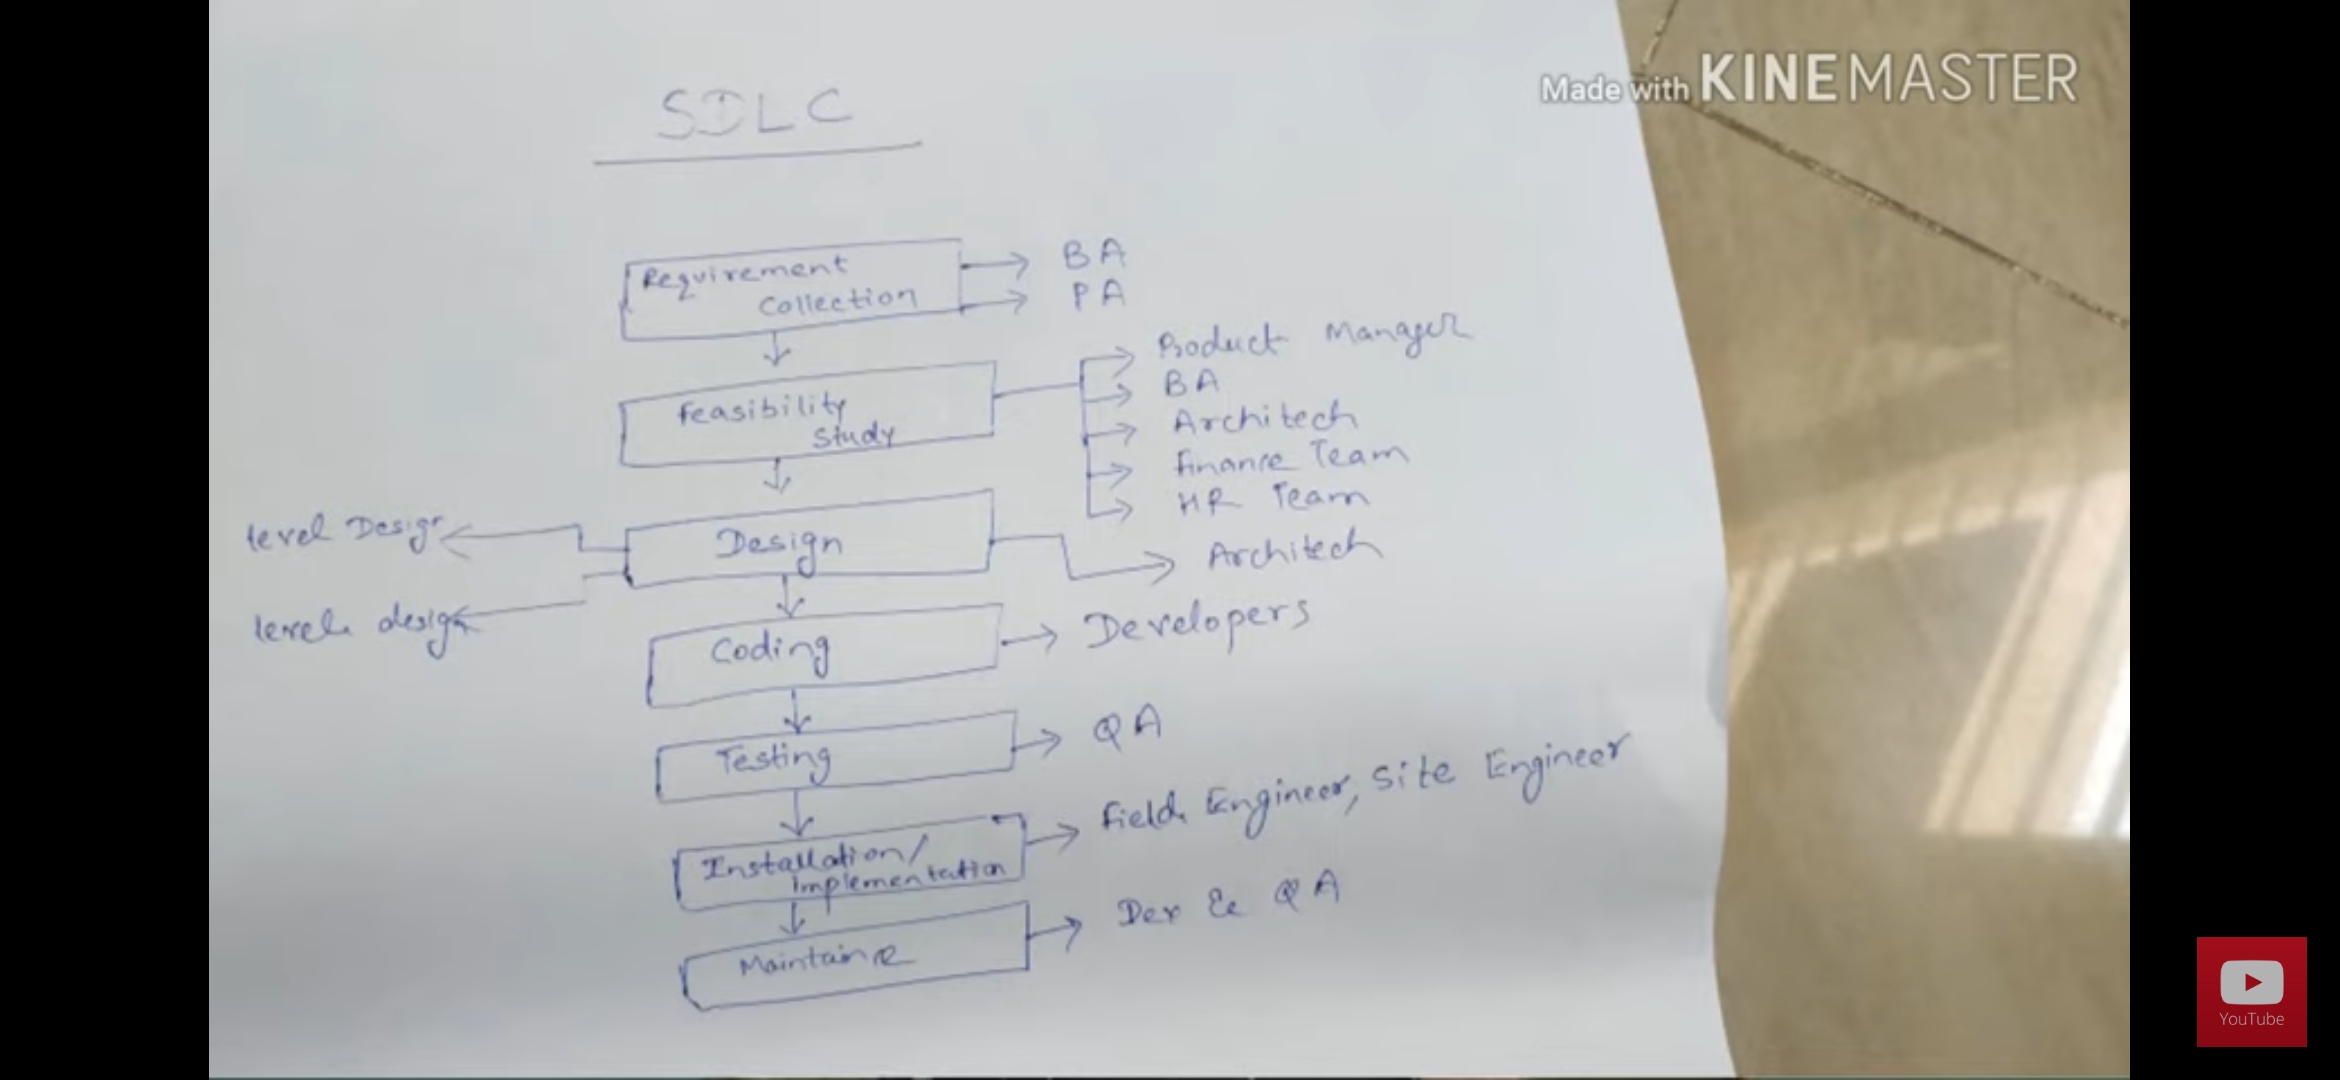 Made with KINEMASTER
SDLC
Requirement
Collection
BA
PA
Feasibility
Study
Product Manager
BA
Architech
Finance Team
HR Team
level Design
level design
Design
Architech
Coding
Developers
Testing
QA
Installation/
Implementation
Field Engineer, Site Engineer
Dev & QA
YouTube